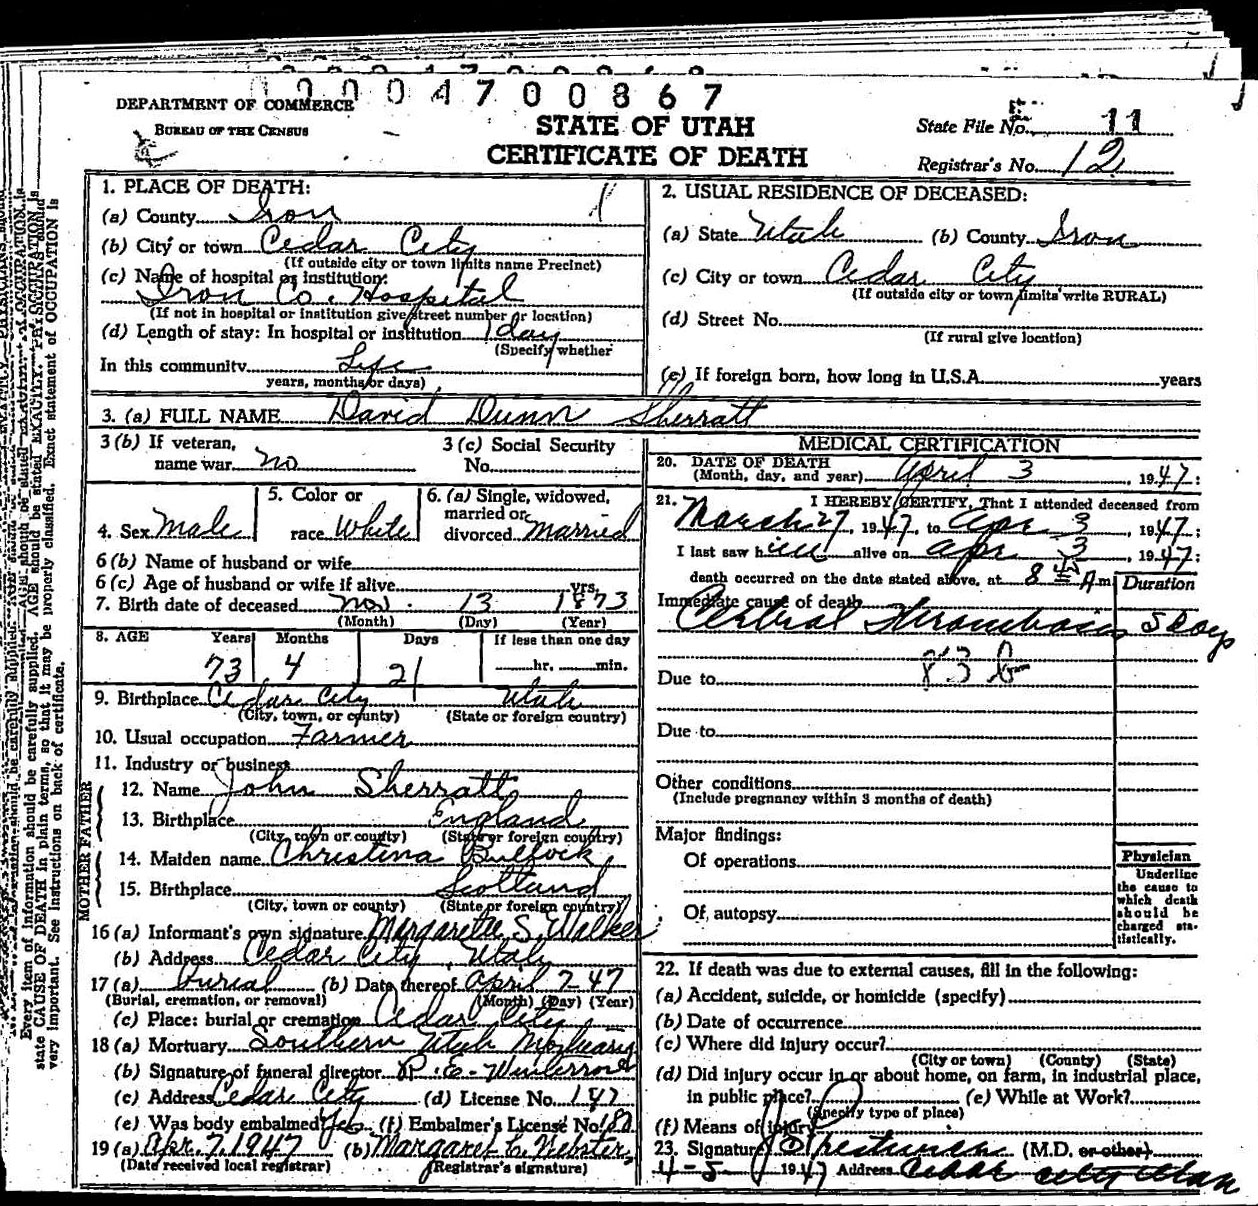 0 0 0 4 7 0 0 8 6 7
DEPARTMENT OF COMMERCE
BUREAU OF THE CENSUS
STATE OF UTAH
CERTIFICATE OF DEATH
State File No. 11
Registrar's No. 12
1. PLACE OF DEATH:
(a) County Iron
(b) City or town Cedar City
(If outside city or town limits name Precinct)
(c) Name of hospital or institution:
Iron Co. Hospital
(If not in hospital or institution give street number or location)
(d) Length of stay: In hospital or institution 1 day
(Specify whether
In this community Life
years, months or days)
2. USUAL RESIDENCE OF DECEASED:
(a) State Utah (b) County Iron
(c) City or town Cedar City
(If outside city or town limits write RURAL)
(d) Street No.
(If rural give location)
(e) If foreign born, how long in U.S.A. years
3. (a) FULL NAME David Dunn Sherratt
3 (b) If veteran, name war no
3 (c) Social Security No.
4. Sex Male
5. Color or race White
6. (a) Single, widowed, married or divorced Married
6 (b) Name of husband or wife
6 (c) Age of husband or wife if alive yrs.
7. Birth date of deceased Nov. 13 1873
(Month) (Day) (Year)
8. AGE Years Months Days If less than one day
73 4 21 hr. min.
9. Birthplace Cedar City Utah
(City, town, or county) (State or foreign country)
10. Usual occupation Farmer
11. Industry or business
FATHER
12. Name John Sherratt
13. Birthplace England
(City, town or county) (State or foreign country)
MOTHER
14. Maiden name Christina Bullock
15. Birthplace Scotland
(City, town or county) (State or foreign country)
16 (a) Informant's own signature Margarette S. Walker
(b) Address Cedar City, Utah
17 (a) burial (b) Date thereof April 7-47
(Burial, cremation, or removal) (Month) (Day) (Year)
(c) Place: burial or cremation Cedar City
18 (a) Mortuary Southern Utah Mortuary
(b) Signature of funeral director
(c) Address Cedar City (d) License No. 147
(e) Was body embalmed Yes (f) Embalmer's License No.
19 (a) Apr. 7, 1947 (b) Margaret C. Webster
(Date received local registrar) (Registrar's signature)
MEDICAL CERTIFICATION
20. DATE OF DEATH
(Month, day, and year) April 3, 1947:
21. I HEREBY CERTIFY, That I attended deceased from
March 27, 1947, to Apr 3, 1947;
I last saw him alive on Apr 3, 1947;
death occurred on the date stated above, at 8 45 A m
Duration
Immediate cause of death
Cerebral Thrombosis 5 days
83 b
Due to
Due to
Other conditions
(Include pregnancy within 3 months of death)
Major findings:
Of operations
Of autopsy
Physician
Underline
the cause to
which death
should be
charged sta-
tistically.
22. If death was due to external causes, fill in the following:
(a) Accident, suicide, or homicide (specify)
(b) Date of occurrence
(c) Where did injury occur?
(City or town) (County) (State)
(d) Did injury occur in or about home, on farm, in industrial place,
in public place? (e) While at Work?
(Specify type of place)
(f) Means of injury
23. Signature (M.D. or other)
4-5 1947 Address Cedar City Utah
Every item of information should be carefully supplied. AGE should be stated EXACTLY. PHYSICIANS should
state CAUSE OF DEATH in plain terms, so that it may be properly classified. Exact statement of OCCUPATION is
very important. See instructions on back of certificate.